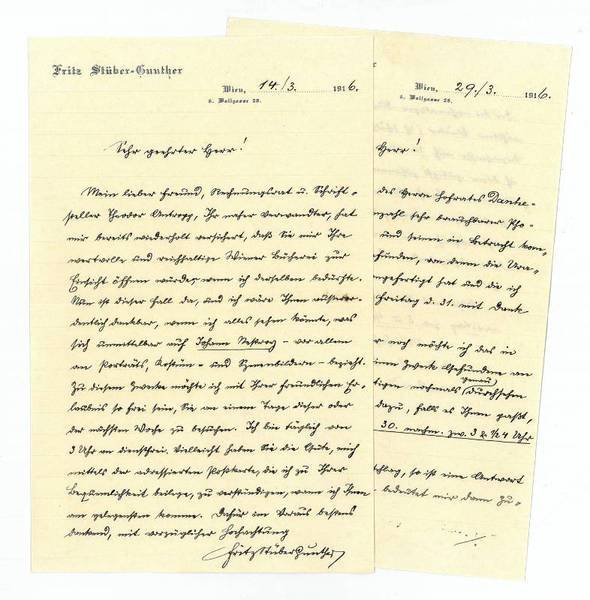 Fritz Stüber-Gunther
Wien, 14./3. 1916.
6. Wallgasse 28.
Sehr geehrter Herr!
Mein lieber Freund, Rechnungsrat u. Schrift-
steller Theodor Antropp, Ihr naher Verwandter, hat
mir bereits wiederholt versichert, daß Sie mir Ihre
wertvolle und reichhaltige Wiener Bücherei zur
Einsicht öffnen würden, wenn ich derselben bedürfte.
Nun ist dieser Fall da, und ich wäre Ihnen außeror-
dentlich dankbar, wenn ich alles sehen könnte, was
sich unmittelbar auf Johann Nestroy – vor allem
an Porträts, Kostüm- und Szenenbildern – bezieht.
Zu diesem Zwecke möchte ich mit Ihrer freundlichen Er-
laubnis so frei sein, Sie an einem Tage dieser oder
der nächsten Woche zu besuchen. Ich bin täglich von
3 Uhr an dienstfrei. Vielleicht haben Sie die Güte, mich
mittels der adressierten Postkarte, die ich zu Ihrer
Bequemlichkeit beilege, zu verständigen, wann ich Ihnen
am gelegensten komme. Dafür im Voraus bestens
dankend, mit vorzüglicher Hochachtung
Fritz Stüber Gunther
Wien, 29./3. 1916.
6. Wallgasse 28.
Herr!
des Herrn Hofrates Danhe-
zahl sehr brauchbarer Pho-
und seinen in Betracht kom-
funden, von denen die
angefertigt hat und die ich
Freitag d. 31. mit Dank
noch möchte ich das in
einen Zweck Gefundene an
genau
nochmals durchsehen
dazu, falls es Ihnen paßt,
30. nachm. zw. 3 & 1/2 4 Uhr
schlag, so ist eine Antwort
bedeutet mir dann Zu-